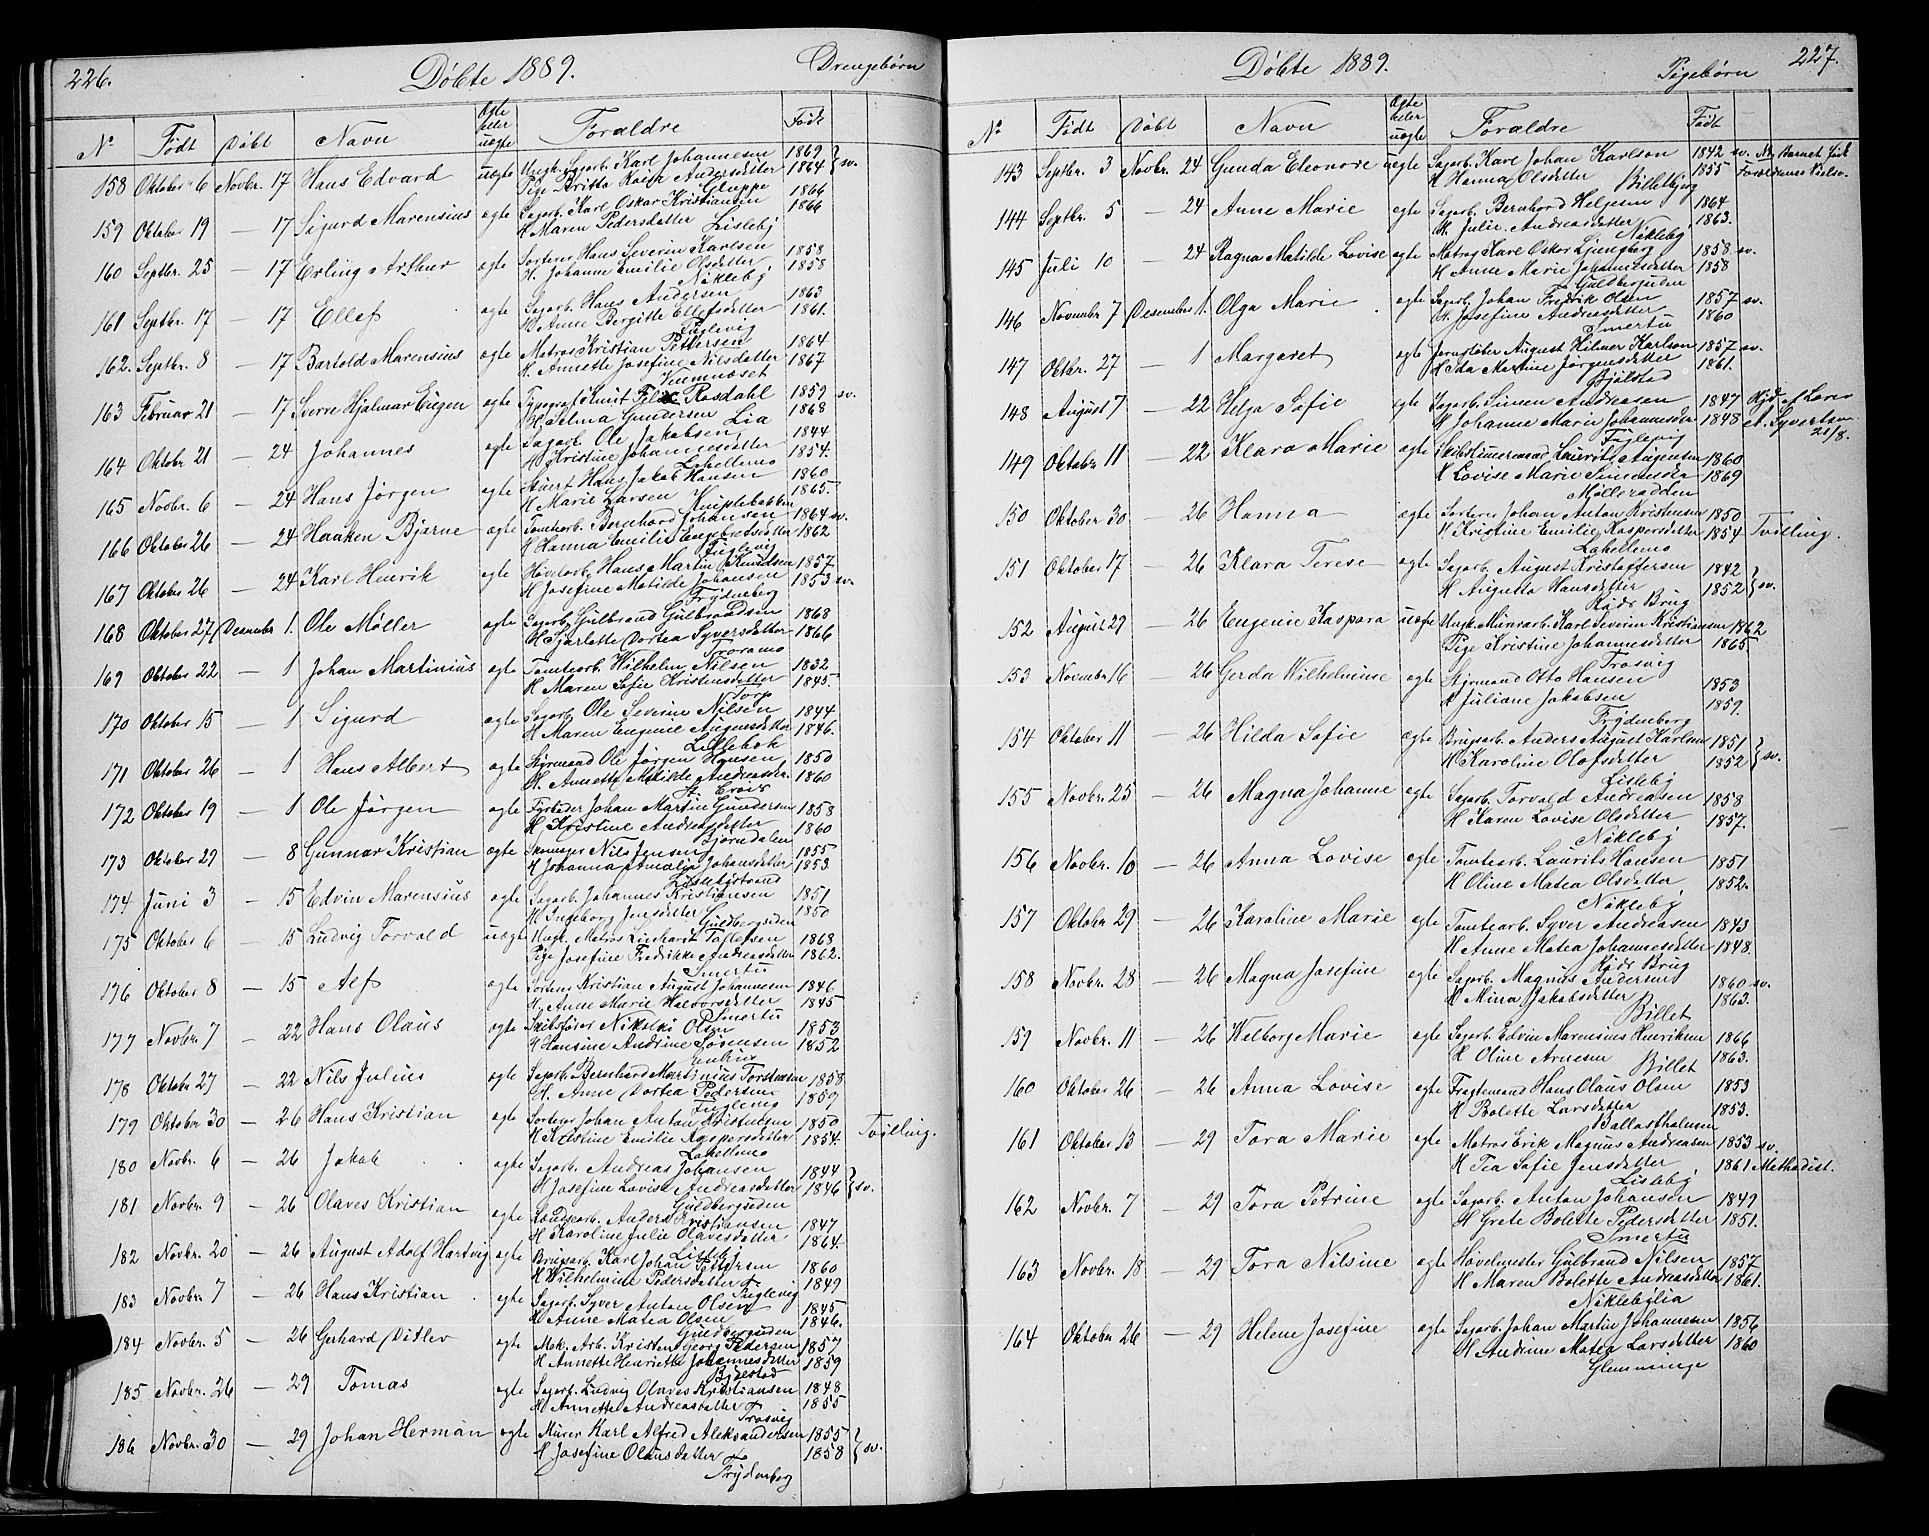 226.
Döbte 1889.
Drengebørn
No Födt Döbt Navn Ægte eller uægte Forældre Födt
158 Oktober 6 Novbr. 17 Hans Edvard uægte Ungk. Sagarb. Karl Johannesen 1869 } sv.
Pige Britta Kaisa Andersdatter 1864
Gluppe
159 Oktober 19 — 17 Sigurd Marensius ægte Sagarb. Karl Oskar Kristiansen 1866
H Maren Pedersdatter 1866
Lisleby
160 Septbr. 25 — 17 Erling Arthur ægte Sorterer Hans Severin Karlsen 1858
H. Johanne Emilie Olsdatter 1858
Nökleby
161 Septbr. 17 — 17 Ellef ægte Sagarb. Hans Andersen 1863
H Anne Bergitte Ellefsdatter 1861.
Fuglevig
162. Septbr. 8 — 17 Bartold Marensius ægte Matros Kristian Pettersen 1864
H. Annette Josefine Nilsdatter 1867
163 Februar 21 — 17 Sverre Hjalmar Eugen ægte Typograf Knut Rosdahl 1859 sv.
H Selma Gundersen 1868
Lia
164 Oktobr. 21 — 24 Johannes ægte Sagarb. Ole Jakobsen 1844
H Kristine Johannesdatter 1854.
Lahellemo
165 Novbr. 6 — 24 Hans Jørgen ægte Stuert Hans Jakob Hansen 1860
H Marie Larsen 1865.
Kniplebakken
166 Oktober 26 — 24 Haaken Bjarne ægte Tomtearb. Bernhard Johansen 1864 sv.
H Hanna Emilie Engebretsdatter 1862
Fuglevig
167 Oktober 26 — 24 Karl Henrik ægte Hövelarb. Hans Martin Knudsen 1857
H Josefine Matilde Johansen 1853 sv.
Frydenberg
168 Oktober 27 Desember 1. Ole Møller ægte Sagarb. Gulbrand Gulbrandsen 1868
H Sjarlotte Dortea Syversdatter 1866
Traramo
169 Oktober 22 — 1 Johan Martinius ægte Tomtearb. Wilhelm Nilsen 1832
H Maren Sofie Kristensdatter 1845.
Torp
170 Oktober 15 — 1 Sigurd ægte Sagarb. Ole Severin Nilsen 1844
H Maren Eugenie Augnesdatter 1846.
Lillebæk
171 Oktober 26 — 1 Hans Albert ægte Styrmand Ole Jørgen Hansen 1850
H. Annette Matilde Andreasdtr. 1860
St. Croix
172 Oktober 19 — 1 Ole Jörgen ægte Fyrböder Johan Martin Gundersen 1858
H Kristine Andreasdatter 1860
Bjorndalen
173 Oktober 29 — 8 Gunnar Kristian ægte Skomager Nils Jensen 1855
H Johanna Amalia Johansdatter 1853
Lislebystrand
174 Juni 3 — 15 Edvin Marensius ægte Sagarb. Johannes Kristiansen 1851
H Ingeborg Jensdatter 1850
Guldbergsiden
175 Oktober 6 — 15 Ludvig Torvald uægte Ungk. Matros Linhardt Tollefsen 1868
Pige Josefine Fredrikke Andreasdatter 1862.
Smertu
176 Oktober 8 — 15 Alf ægte Sorterer Kristian August Johannesen 1846
H. Anne Marie Halvorsdatter 1845
Smertu
177 Novbr. 7 — 22 Hans Olaus ægte Skibsfører Nikolai Olsen 1853
H Hansine Andrine Sørensen 1852
178 Oktobr 27 — 22 Nils Julius ægte Sagarb. Bernhard Martinius Torstensen 1858
H. Anne Dortea Pedersen 1859
Fuglevig
179 Oktober 30 — 26 Hans Kristian ægte Sorterer Johan Anton Kristensen 1850 Tvilling.
H Kristine Emilie Kaspersdatter 1854.
Lahellemo
180 Novbr. 6 — 26 Jakob ægte Sagarb. Andreas Johansen 1844 } sv.
H Josefine Lovise Andreasdatter 1846
Guldbergsiden
181 Novbr. 9 — 26 Olaves Kristian ægte Landgearb. Anders Kristiansen 1847
H Karoline Julie Olavesdatter 1864.
Lisleby
182 Novbr. 20 — 26 August Adolf Hartvig ægte Brugsarb. Karl Johan Pettersen 1860
H Wilhelmine Pedersdatter 1849
Fuglevig
183 Novbr. 7 — 26 Hans Kristian ægte Sagarb. Syver Anton Olsen 1845
H Anne Matea Olsen 1846.
Guldbergsiden
184 Novbr. 5 — 26 Gerhard Ditlev ægte Mek. Arb. Kristen Georg Pedersen 1857
H Annette Henriette Johannesdatter 1859
Bjölstad
185 Novbr. 26 — 29 Tomas ægte Sagarb. Ludvig Olaves Kristiansen 1848
H Annette Andreasdatter 1855
Trosvig
186 Novbr. 30 — 29 Johan Herman ægte Murer Karl Alfred Aleksandersen 1855 } sv.
H Josefine Olausdatter 1858
Frydenberg
227.
Döbte 1889.
Pigebørn
No Födt Döbt Navn Ægte eller uægte Forældre Födt
143 Septbr. 3 Novbr. 24 Gunda Eleonore uægte Sagarb. Karl Johan Karlson 1842 sv. Barnet født
H Hanna Olsdatter 1855 Forældrenes Vielse.
Billebjerg
144 Septbr. 5 — 24 Anne Marie ægte Sagarb. Bernhard Helgesen 1864
H. Julie Andreasdatter 1863.
Nökleby
145 Juli 10 — 24 Ragna Matilde Lovise ægte Matros Karl Oskar Ljungberg 1858 sv.
H Anne Marie Johannesdatter 1858
Guldbergsiden
146 Novembr 7 Desember 1. Olga Marie ægte Sagarb. Johan Fredrik Olsen 1857 sv.
H. Josefine Andreasdatter 1860
Smertu
147 Oktbr. 27 — 1 Margaret ægte Jernstöber August Hilmer Karlson 1857 sv.
H Ida Martine Jørgensdatter 1861.
Bjölstad
148 August 7 — 22 Helga Sofie ægte Sagarb. Simen Andreasen 1847 Hjd. af Lærer
H Johanne Marie Johannesdtr 1848 A. Syvertsen 21/8.
Fuglevig
149 Oktobr 11 — 22 Klara Marie ægte Skibstimermand Laurits Augensen 1860
H Lovise Marie Simensdtr 1869
Mølleradden
150 Oktober 30 — 26 Hanna ægte Sorterer Johan Anton Kristensen 1850 Tvilling.
H Kristine Emilie Kaspersdatter 1854
Lahellemo
151 Oktober 17 — 26 Klara Terese ægte Sagarb. August Kristoffersen 1842 } sv.
H Augusta Hansdatter 1852
Röds Brug
152 August 29 — 26 Eugenie Kaspara uægte Ungk. Minearb. Karl Severin Kristiansen 1862
Pige Kristine Johannesdatter 1865
Trosvig
153 Novembr 16 — 26 Gerda Wilhelmine ægte Styrmand Otto Hansen 1853
H Juliane Jakobsen 1859.
Frydenberg
154 Oktober 11 — 26 Hilda Sofie ægte Brugsarb. Anders August Karlsen 1851 } sv.
H Karoline Olofsdatter 1852
Lisleby
155 Novbr. 25 — 26 Magna Johanne ægte Sagarb. Torvald Andreasen 1858
H Karen Lovise Olsdatter 1857.
Nökleby
156 Novbr. 10 — 26 Anna Lovise ægte Tomtearb. Laurits Hansen 1851
H Oline Matea Olsdatter 1852.
Nökleby
157 Oktobr 29 — 26 Karoline Marie ægte Tomtearb. Syver Andreasen 1843
H Anne Matea Johannesdatter 1848.
Röds Brug
158 Novbr. 28 — 26 Magna Josefine ægte Sagarb. Magnus Andersen 1860 sv.
H Mina Jakobsdatter 1863.
Billet
159 Novbr. 11 — 26 Welborg Marie ægte Sagarb. Edvin Marensius Henriksen 1866
H Oline Arnesen 1863.
Billet
160 Oktober 26 — 26 Anna Lovise ægte Fragtemand Hans Olaus Olsen 1853
H Bolette Larsdatter 1853.
Ballastholmen
161 Oktober 13 — 29 Tora Marie ægte Matros Erik Magnus Andersen 1853 sv.
H Tea Sofie Jensdatter 1861 Methodist.
Lisleby
162 Novbr. 7 — 29 Tora Petrine ægte Sagarb. Anton Johansen 1849
H Grete Bolette Pedersdatter 1851.
Smertu
163 Novbr. 18 — 29 Tora Nilsine ægte Hövelmester Gulbrand Nilsen 1857
H Maren Bolette Andreasdatter 1861.
Nöklebylia
164 Oktobr. 26 — 29 Helene Josefine ægte Sagarb. Johan Martin Johannesen 1856
H Andrine Matea Larsdatter 1860
Glemminge